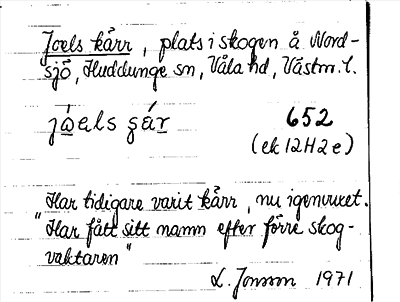 Joels kärr, plats i skogen å Nord-
sjö, Huddunge sn, Våla hd, Västm. l.
jὰəls şä́r 652
(ek 12H2e)
"Har tidigare varit kärr, nu igenvuxet.
Har fått sitt namn efter förre skog-
vaktaren"
L. Jonsson 1971